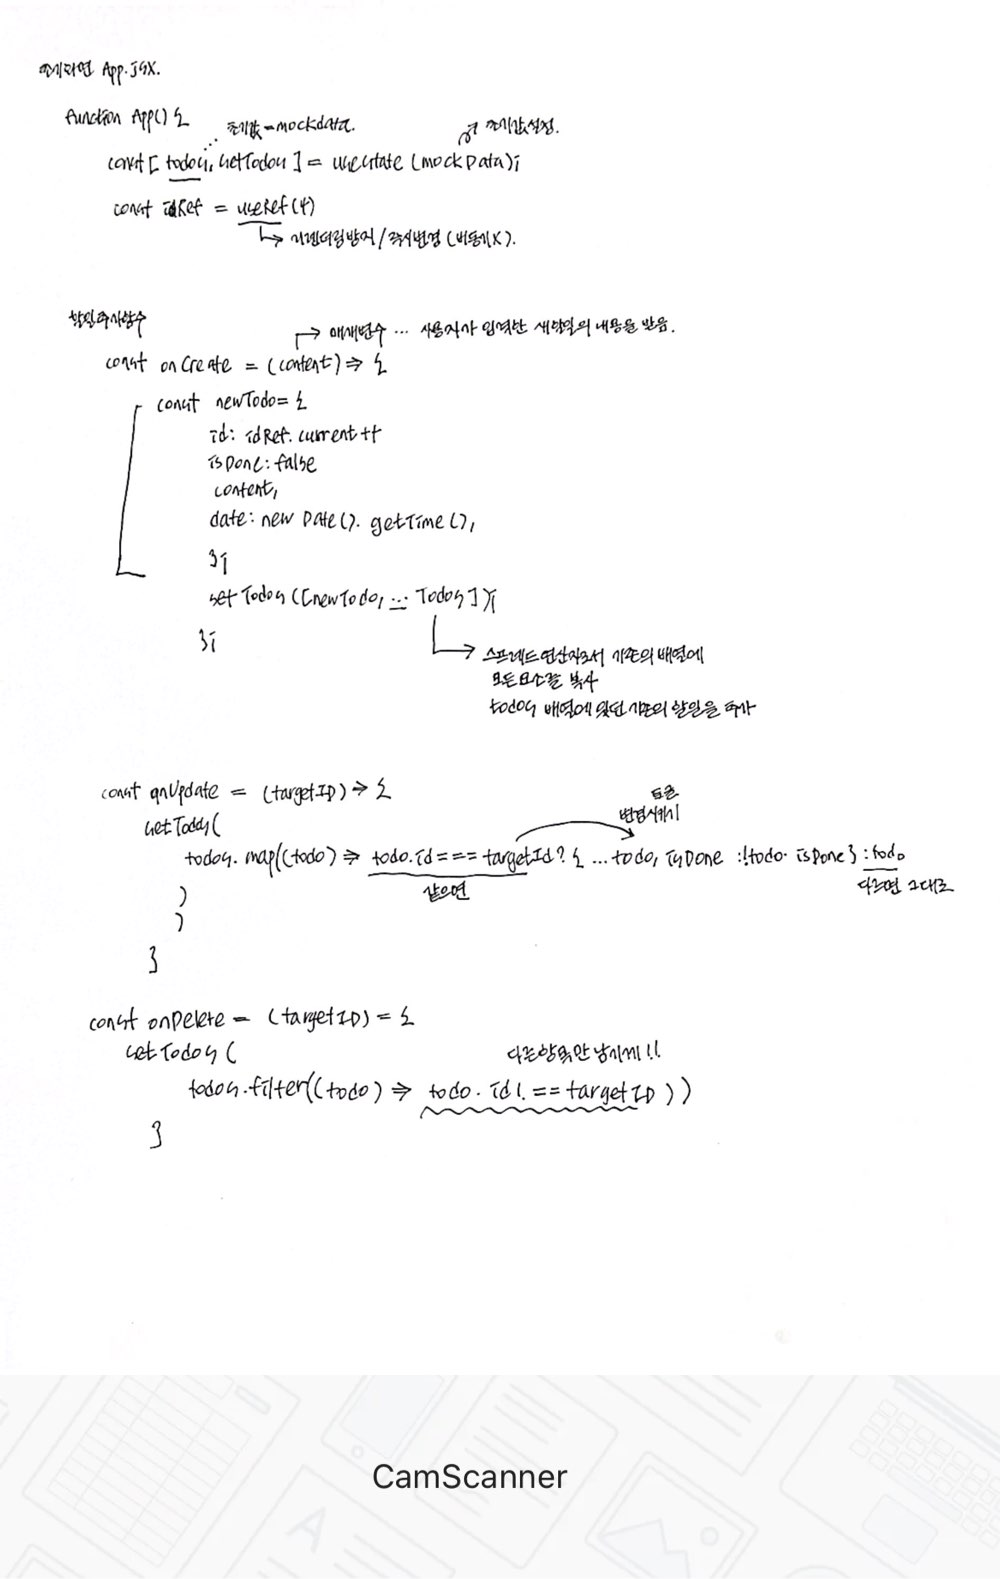 App.JSX.
function App() {
초기값=mockdata.
초기값설정.
const [ todos, setTodos ] = useState (mockData);
const idRef = useRef(4)
리렌더링방지 / 즉시변경 (비동기X).
할일추가함수
매개변수 ... 사용자가 입력한 새할일의 내용을 받음.
const onCreate = (content) => {
const newTodo= {
id: idRef. current++
isDone: false
content,
date: new Date(). getTime(),
};
set Todos ([newTodo, ... Todos]);
};
스프레드연산자로서 기존의 배열에
모든요소를 복사
todos 배열에 있던 기존의 할일을 추가
const onUpdate = (targetID) => {
토글
변경시키기
setTodos(
todos. map((todo) => todo.id === targetId? { ...todo, isDone :!todo. isDone} :todo
같으면
다르면 그대로
)
)
}
const onDelete = (targetID) = {
setTodos (
다른항목만 남기게!!
todos.filter((todo) => todo. id! == targetID ))
}
CamScanner